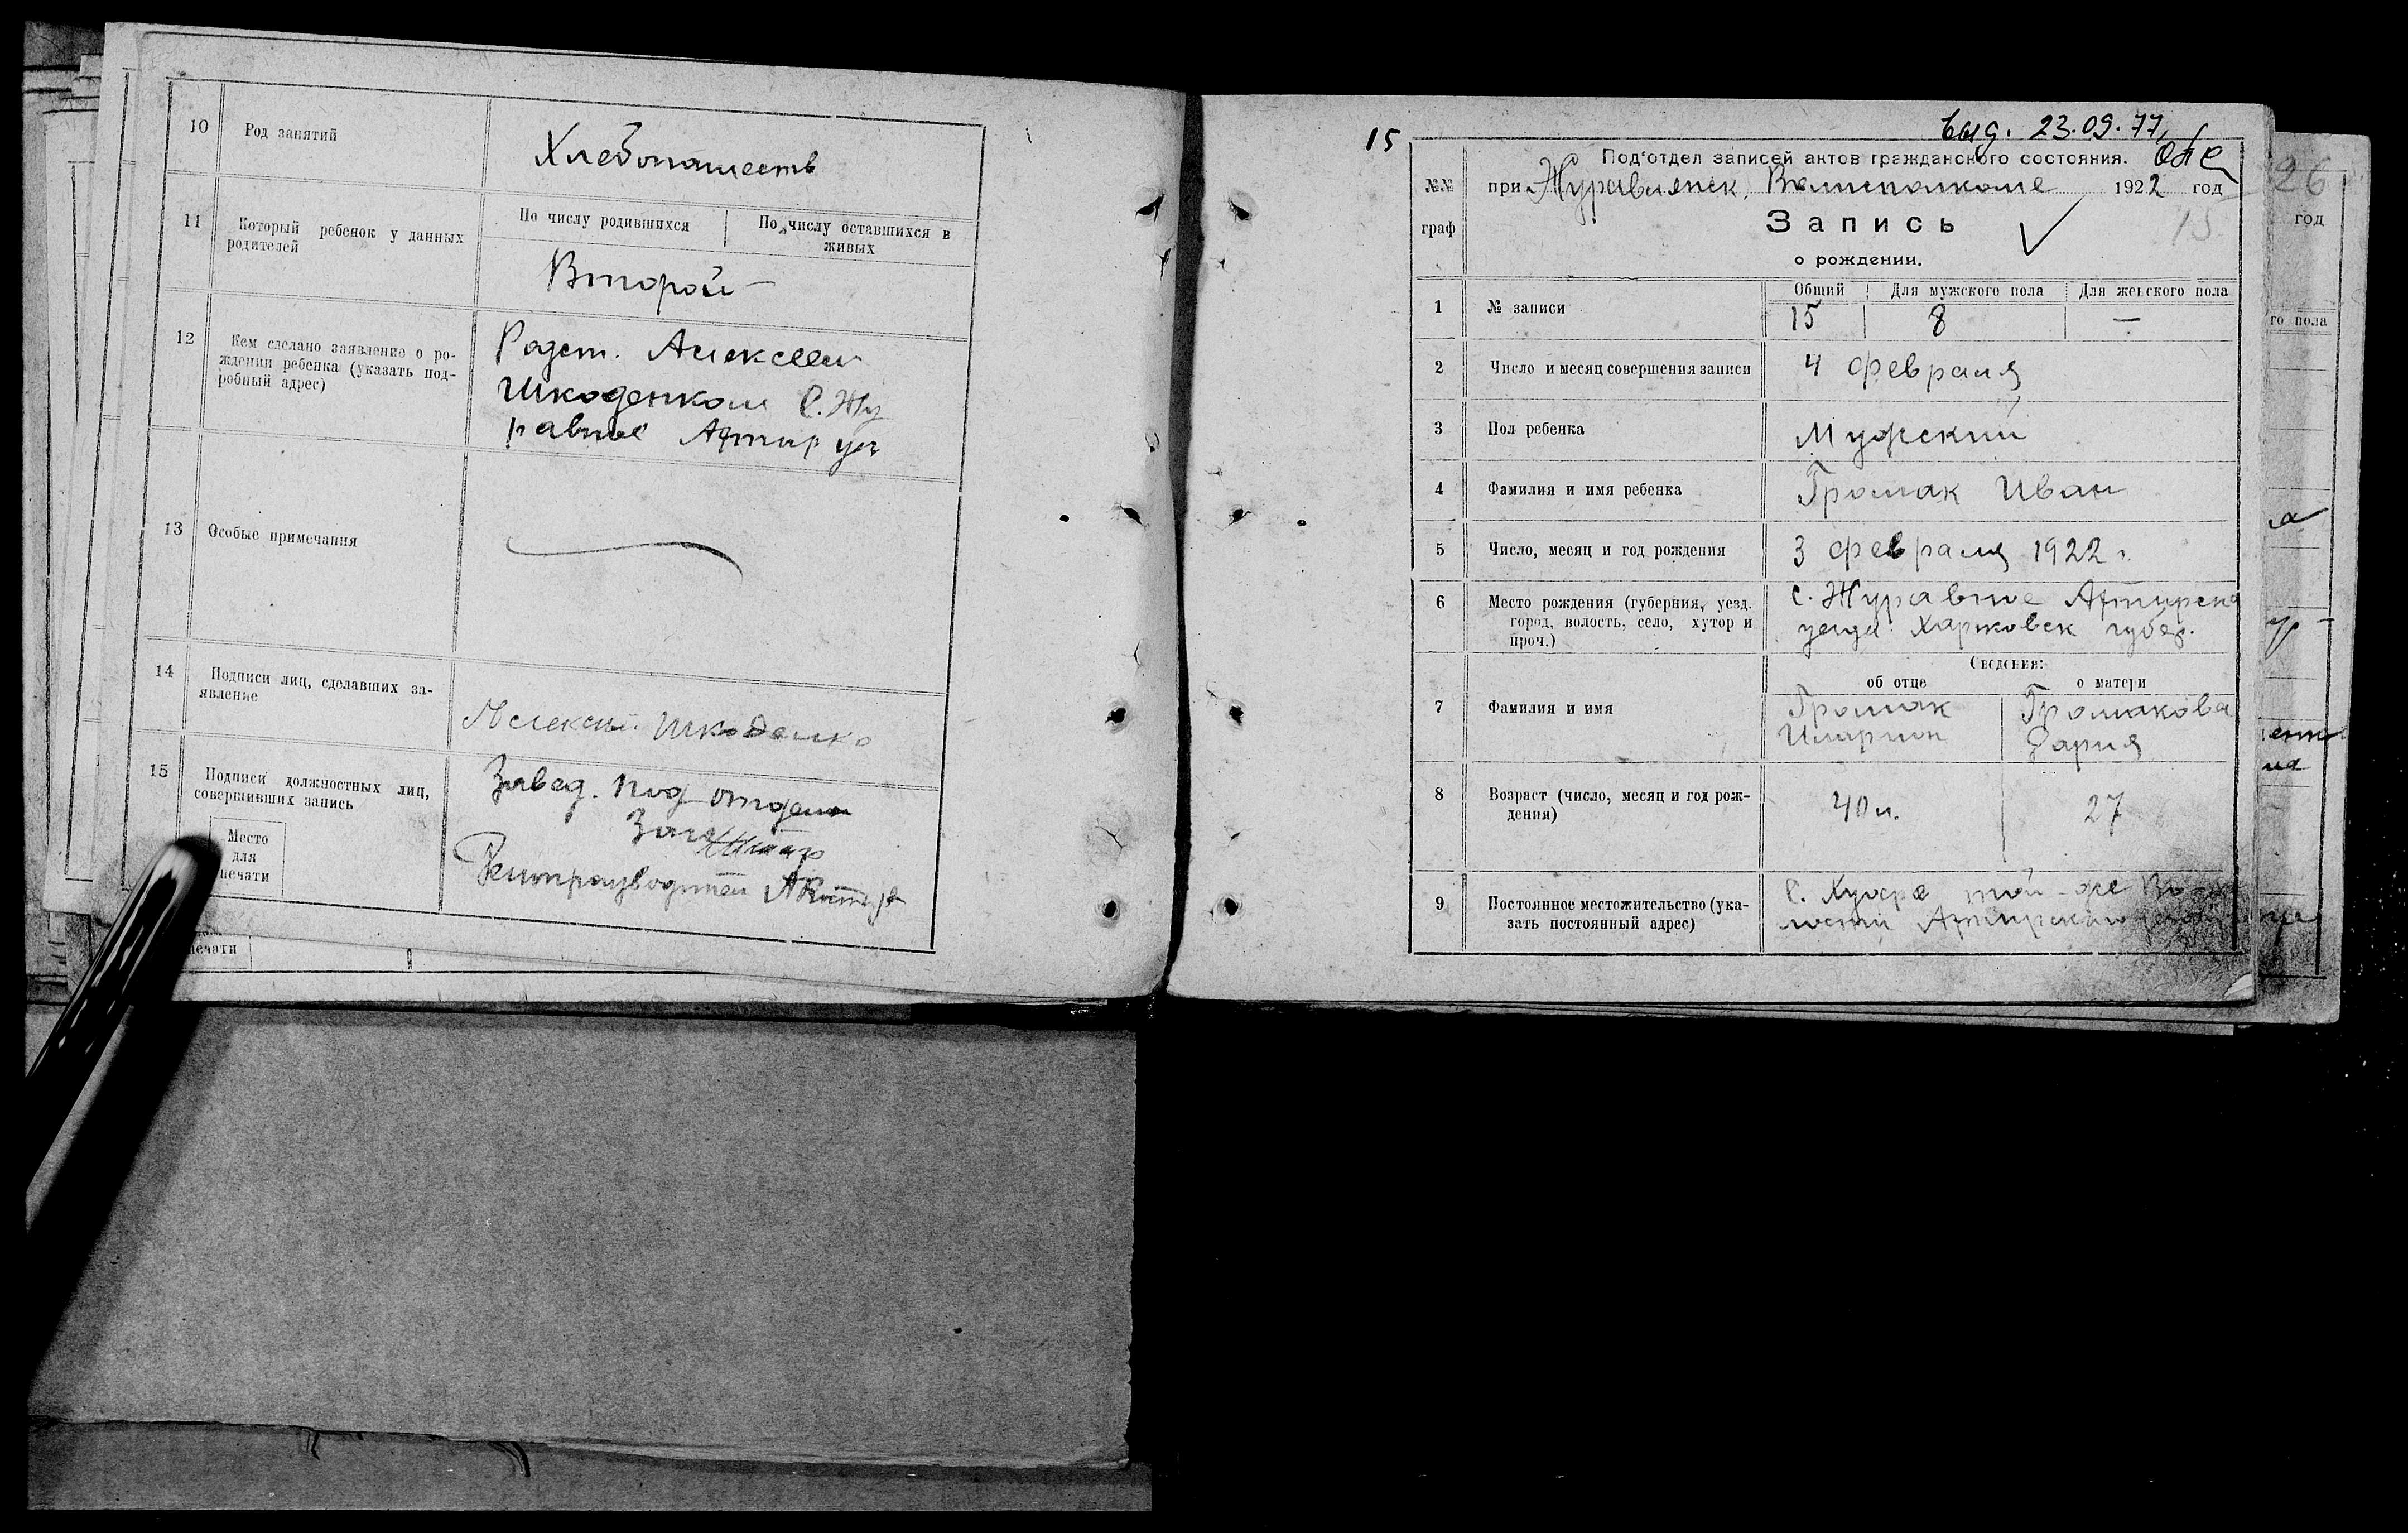 10 Род занятий Хлебопашеств
11 Который ребенок у данных родителей
По числу родившихся По числу оставшихся в живых
Второй —
12 Кем сделано заявление о ро-
ждении ребенка (указать под-
робный адрес)
Родст. Алексеем
Шкоденком С. Жу
равное Ахтыр уез
13 Особые примечания
14 Подписи лиц, сделавших за-
явление
Алексей Шкоденко
15 Подписи должностных лиц,
совершивших запись
Завед. Под отделом
Загс
Делопроизводител
Место
для
печати
печати
15
выд. 23.09.77
Под'отдел записей актов гражданского состояния.
№№ граф
при Журавлянск. Волисполкоме 1922 год
Запись
15
о рождении.
Общий Для мужского пола Для женского пола
1 № записи 15 8 —
2 Число и месяц совершения записи 4 февраля
3 Пол ребенка Мужский
4 Фамилия и имя ребенка Громак Иван
5 Число, месяц и год рождения 3 февраля 1922 г.
6 Место рождения (губерния, уезд,
город, волость, село, хутор и
проч.)
с. Журавное Ахтырско
уезда Харковск губер.
Сведения:
об отце о матери
7 Фамилия и имя
Громак Громакова
Иларион Дария
8 Возраст (число, месяц и год рож-
дения)
40 л. 27
9 Постоянное местожительство (ука-
зать постоянный адрес)
той-же Во
лости Ахтырского уезда
26
год
го пола